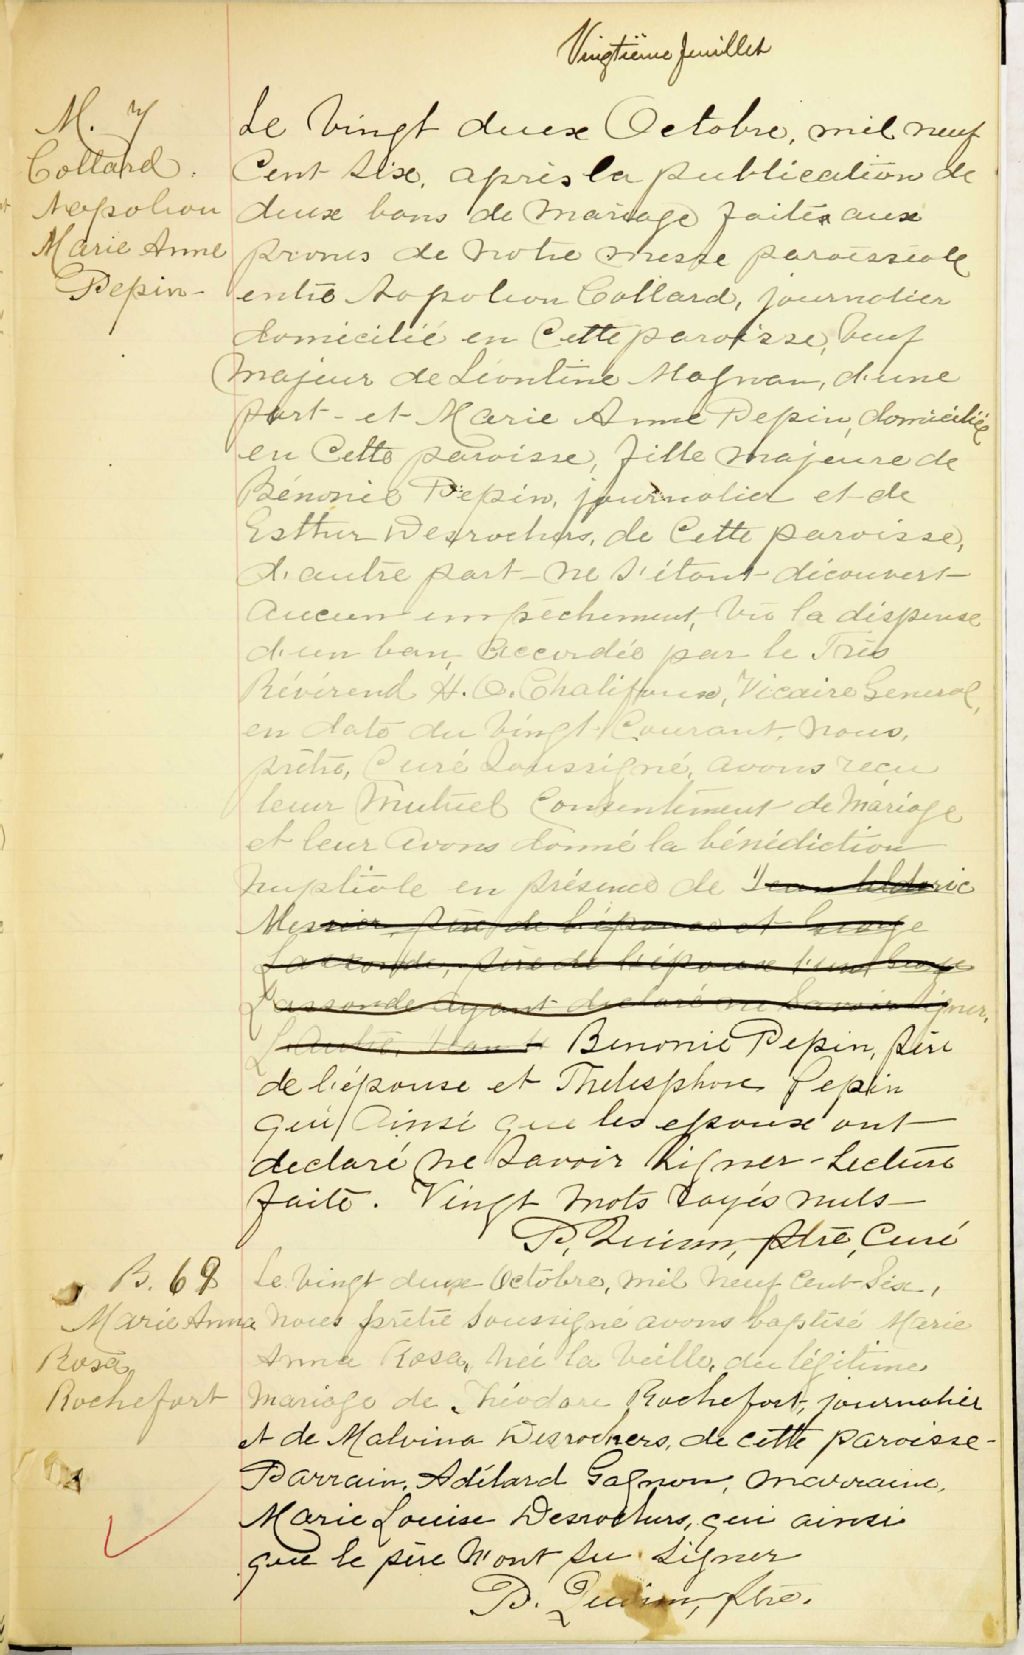 Vingtième feuillet
M. 7
Collard
Napoleon
Marie Anne
Pepin
Le Vingt deux Octobre, mil neuf
Cent Six, après la publication de
deux bans de Mariage faites aux
prones de notre messe paroissiale
entre Napoleon Collard, journalier
domicilié en Cette paroisse, Veuf
Majeur de Léontine Magnan, d'une
part - et Marie Anne Pepin, domiciliée
en Cette paroisse, fille majeure de
Bénonie Pepin, journalier et de
Esther Desrochers, de Cette paroisse,
d'autre part - ne s'étant découvert
aucun empêchement, Vu la dispense
d'un ban, accordée par le Très
Révérend H. O. Chalifoux, Vicaire General,
en date du Vingt Courant, nous,
prêtre, Curé Soussigné, avons reçu
leur Mutuel Consentement de Mariage
et leur avons donné la bénédiction
nuptiale en présence de Jean Alderic
Messier, père de l'épouse et George
Lassonde, père de l'époux l'un George
Lassonde ayant declaré ne Savoir Signer,
L'Autre, Benonie Pepin, père
de l'épouse et Thelesphore Pepin
qui ainsi que les epoux ont
declaré ne Savoir Signer - Lecture
faite. Vingt mots rayés nuls -
P. ptre, Curé
B. 69
Marie Anna
Rosa
Rochefort
Le Vingt deux Octobre, mil neuf Cent Six,
nous prêtre Soussigné avons baptisé Marie
Anna Rosa, née la Veille, du légitime
Mariage de Théodore Rochefort, journalier
et de Malvina Desrochers, de cette paroisse -
Parrain, Adélard Gagnon, marraine,
Marie Louise Desrochers, qui ainsi
que le père n'ont su Signer
P. ptre.